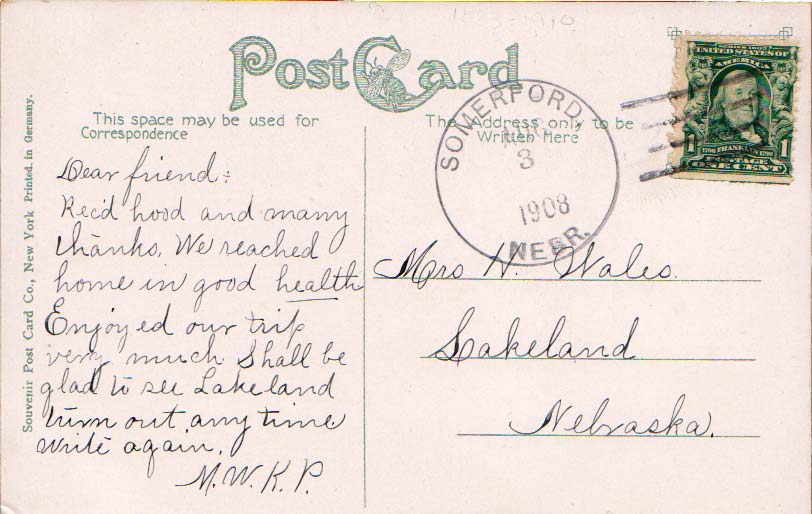 1883-1910
Post Card
This space may be used for
Correspondence
The Address only to be
Written Here
SERIES 1902
UNITED STATES OF
AMERICA
1 1706 FRANKLIN 1790 1
POSTAGE
ONE CENT
SOMERFORD,
AUG
3
1908
NEBR.
Souvenir Post Card Co., New York Printed in Germany.
Dear friend:
Rec'd hood and many
thanks. We reached
home in good health
Enjoyed our trip
very much Shall be
glad to see Lakeland
turn out any time
write again.
M.W.K.P.
Mrs H. Wales.
Lakeland
Nebraska.